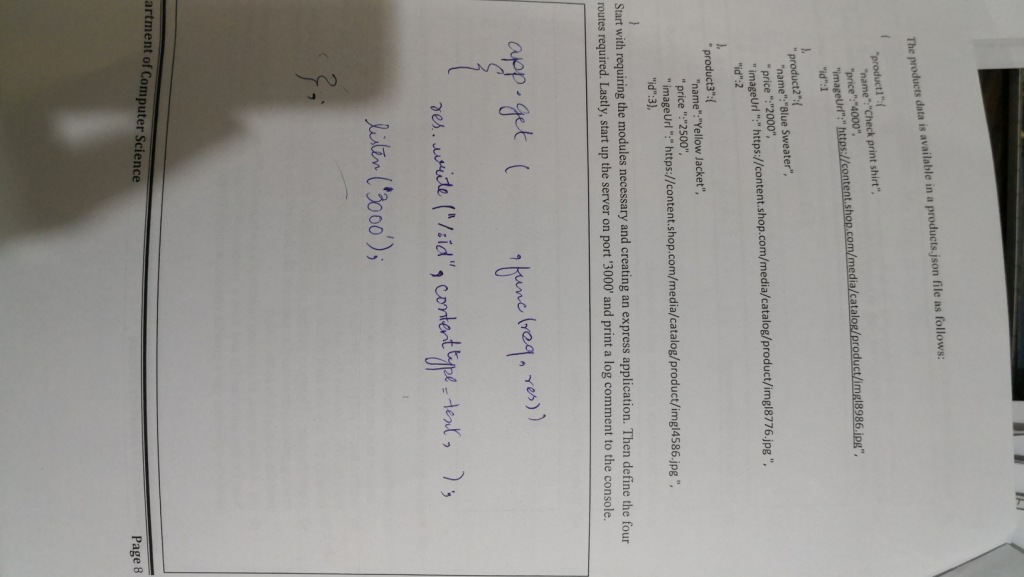 The products data is available in a products.json file as follows:
{
"product1":{
"name":"Check print shirt",
"price":"4000",
"imageUrl":" https://content.shop.com/media/catalog/product/imgl8986.jpg",
"id":1
},
" product2":{
"name":"Blue Sweater",
" price ":"2000",
" imageUrl ":" https://content.shop.com/media/catalog/product/imgl8776.jpg ",
"id":2
},
" product3":{
"name":"Yellow Jacket",
" price ":"2500",
" imageUrl ":" https://content.shop.com/media/catalog/product/imgl4586.jpg ",
"id":3},
}
Start with requiring the modules necessary and creating an express application. Then define the four
routes required. Lastly, start up the server on port '3000' and print a log comment to the console.
app.get ( , func (req, res))
{
res. write ("/:id", content type = text, );
listen ('3000');
};
artment of Computer Science
Page 8